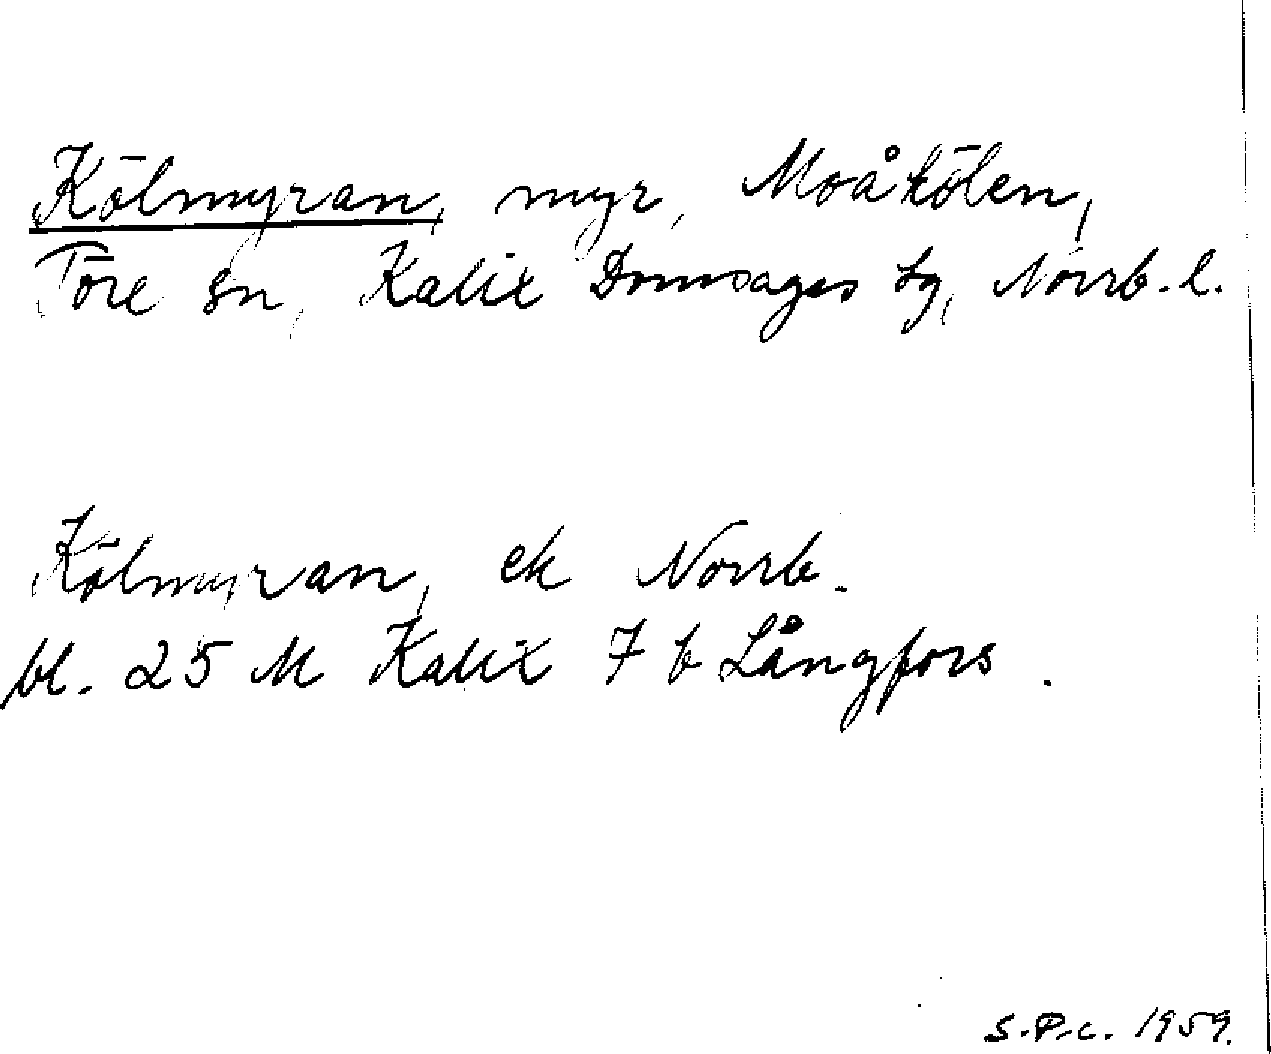 Kölmyran, myr, Moåkölen,
Töre sn, Kalix Domsagas tg, Norrb. l.
Kölmyran, ek Norrb.
bl. 25 M Kalix 7 b Långfors.
S.P.C. 1959.